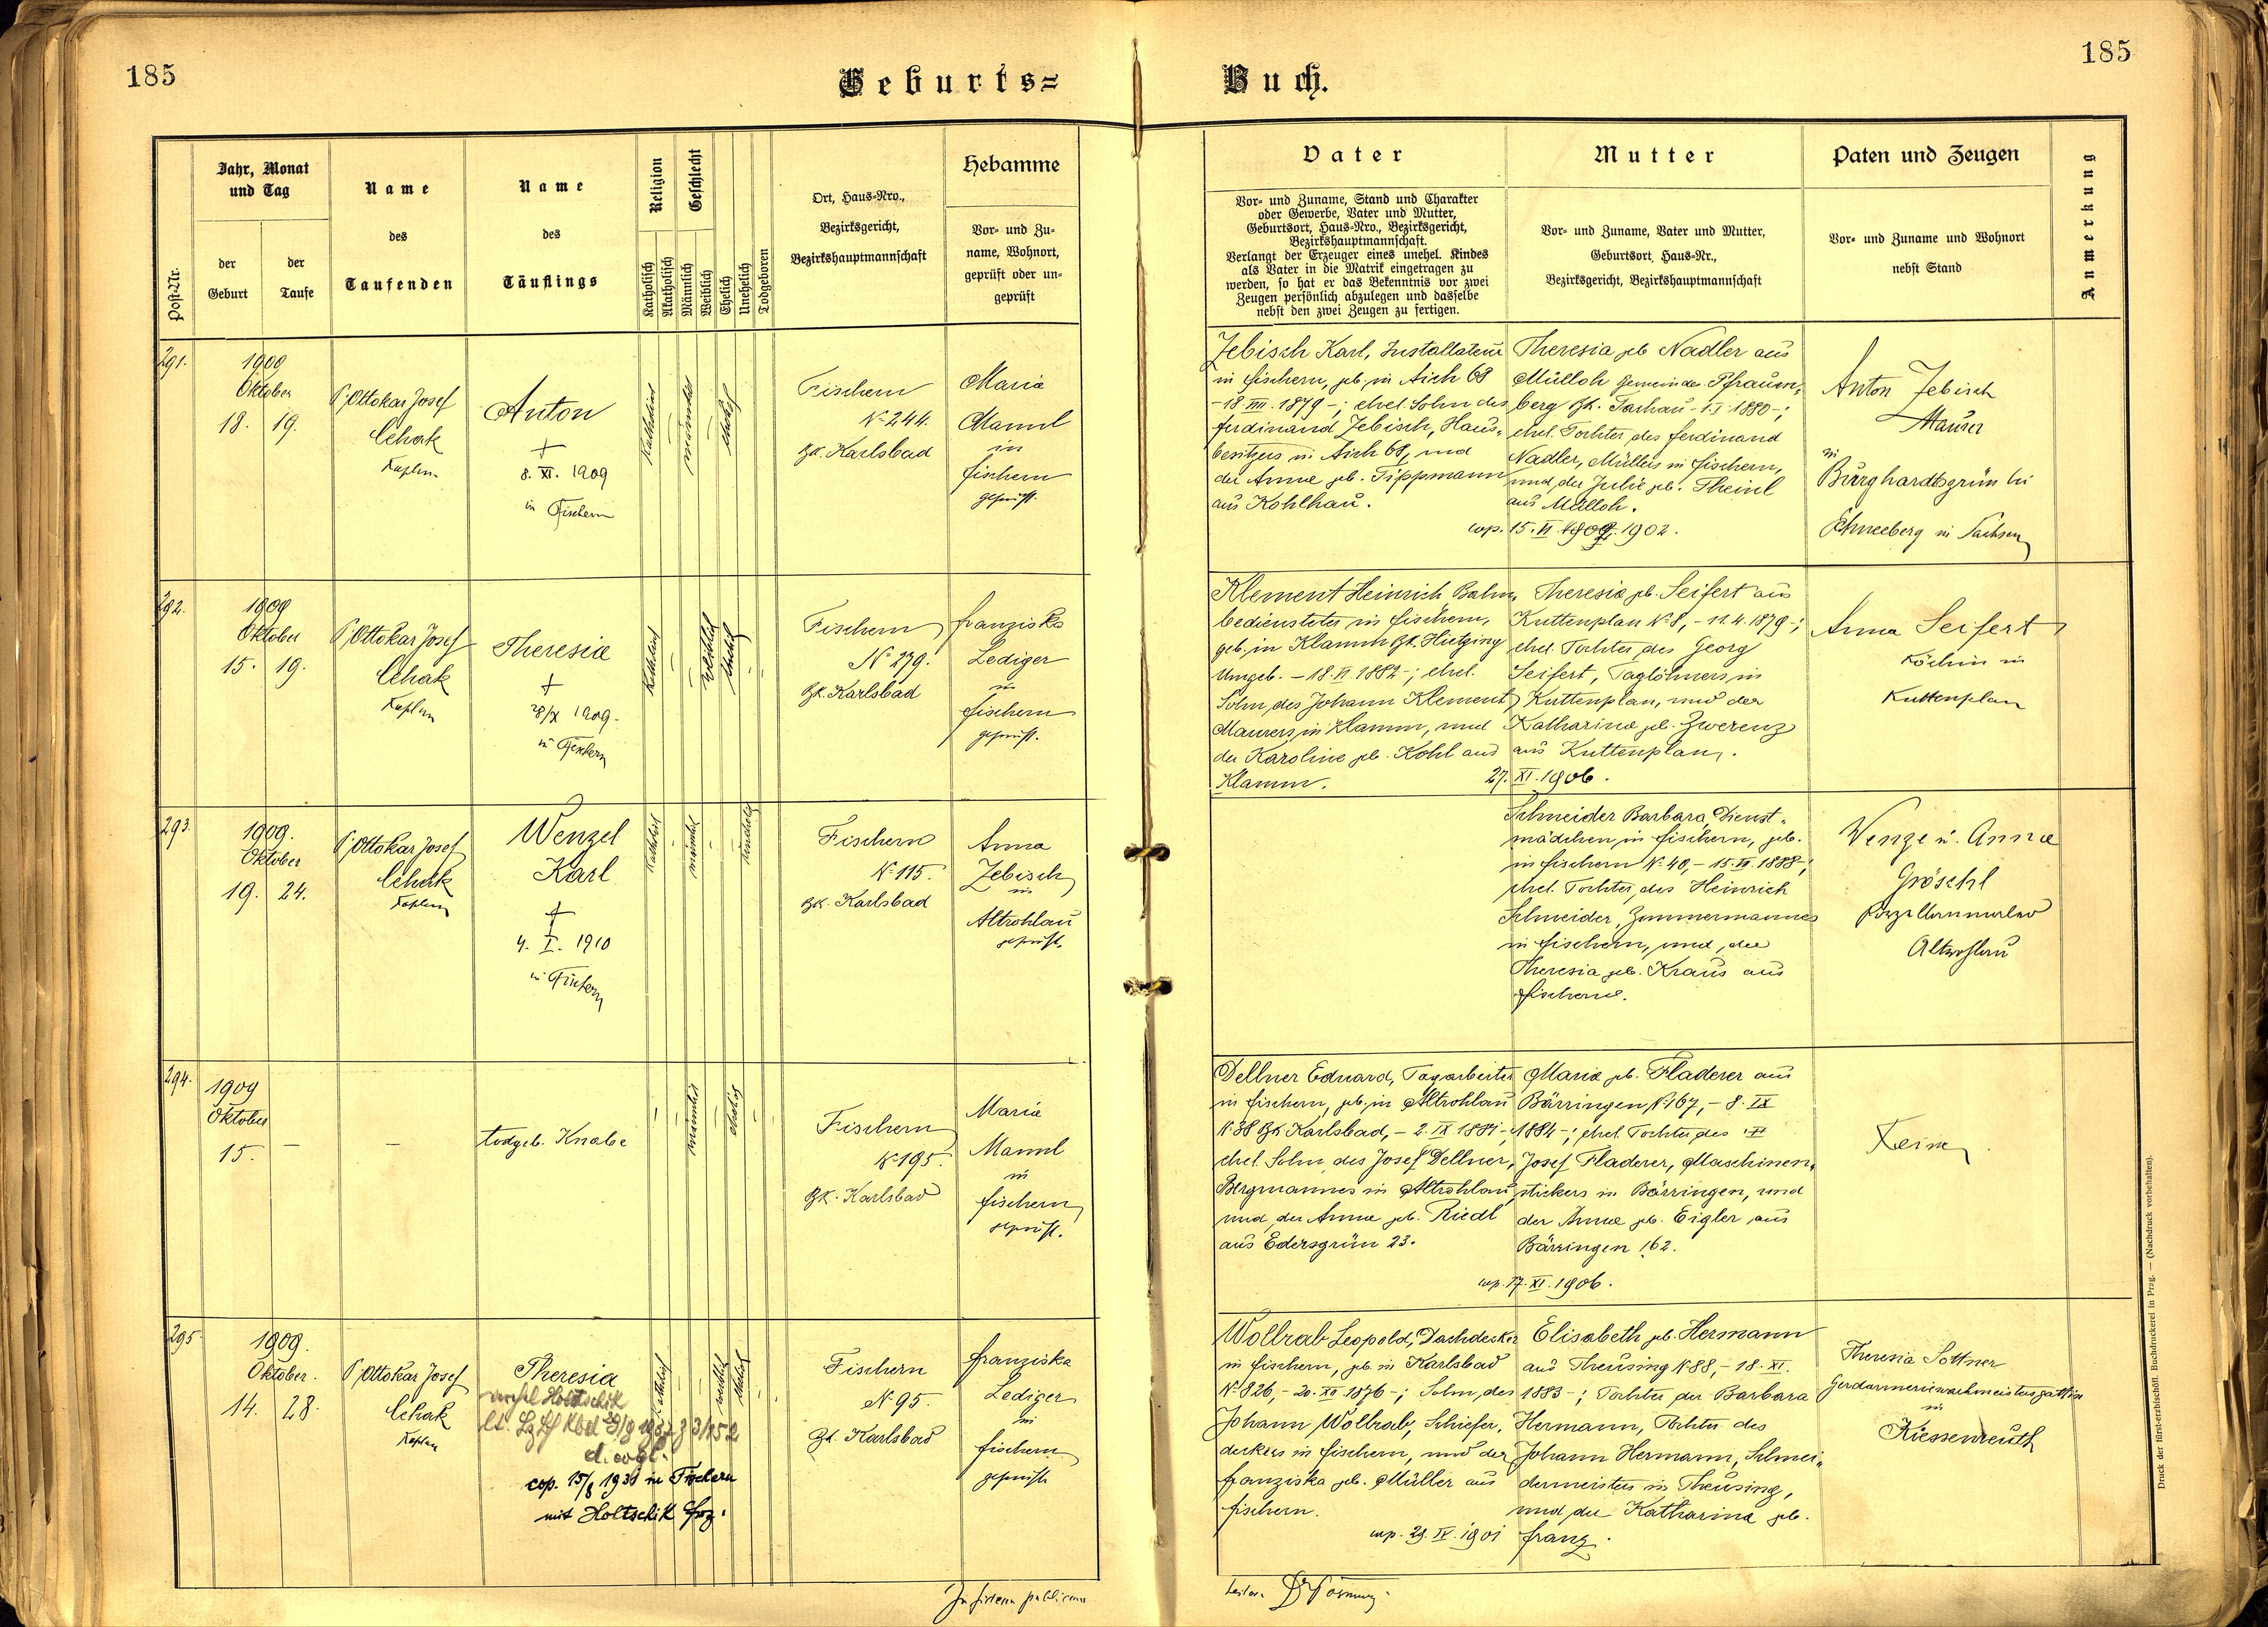 185
Geburts=
Buch.
185
Post-Nr.
Jahr, Monat
und Tag
der
Geburt
der
Taufe
Name
des
Taufenden
Name
des
Täuflings
Religion
Katholisch
Akatholisch
Geschlecht
Männlich
Weiblich
Ehelich
Unehelich
Todgeboren
Ort, Haus-Nro.,
Bezirksgericht,
Bezirkshauptmannschaft
Hebamme
Vor- und Zu-
name, Wohnort,
geprüft oder un-
geprüft
Vater
Vor- und Zuname, Stand und Charakter
oder Gewerbe, Vater und Mutter,
Geburtsort, Haus-Nro., Bezirksgericht,
Bezirkshauptmannschaft.
Verlangt der Erzeuger eines unehel. Kindes
als Vater in die Matrik eingetragen zu
werden, so hat er das Bekenntnis vor zwei
Zeugen persönlich abzulegen und dasselbe
nebst den zwei Zeugen zu fertigen.
Mutter
Vor- und Zuname, Vater und Mutter,
Geburtsort, Haus-Nr.,
Bezirksgericht, Bezirkshauptmannschaft
Paten und Zeugen
Vor- und Zuname und Wohnort
nebst Stand
Anmerkung
291.
1909
Oktober
18. 19.
P. Ottokar Josef
Cehak
Kaplan
Anton
+
8. XI. 1909
in Fischern
katholisch
-
männlich
-
ehelich
Fischern
No 244.
Bk. Karlsbad
Maria
Mannl
in
Fischern
geprüft.
Zebisch Karl, Installateur
in Fischern, geb. in Aich 68
-18. VIII. 1879-; ehel. Sohn des
Ferdinand Zebisch, Haus-
besitzers in Aich 68, und
der Anna geb. Tippmann
aus Kohlhau.
Theresia geb. Nadler aus
Mülloh Gemeinde Pfraum-
berg Bk. Tachau -1. I. 1880-;
ehel. Tochter des Ferdinand
Nadler, Müllers in Fischern,
und der Julie geb. Theinl
aus Mülloh.
cop. 15. VI. 1902.
Anton Zebisch
Maurer
in
Burghardtsgrün bei
Schneeberg in Sachsen
292.
1909
Oktober
15. 19.
P. Ottokar Josef
Cehak
Kaplan
Theresia
+
28/X 1909.
in Fischern
katholisch
-
-
weiblich
ehelich
-
Fischern
No 279.
Bk. Karlsbad
Franziska
Lediger
in
Fischern
geprüft.
Klement Heinrich Bahn-
bediensteter in Fischern,
geb. in Klamm Bk. Hietzing
Umgeb. -18. VI. 1882-; ehel.
Sohn des Johann Klement
Maurers in Klamm, und
der Karoline geb. Kohl aus
Klamm.
Theresia geb. Seifert aus
Kuttenplan No 8, -11. 4. 1879-;
ehel. Tochter des Georg
Seifert, Taglöhners in
Kuttenplan, und der
Katharina geb. Zwerenz
aus Kuttenplan.
27. XI. 1906.
Anna Seifert
Köchin in
Kuttenplan
293.
1909.
Oktober
19. 24.
P. Ottokar Josef
Cehak
Kaplan
Wenzel
Karl
+
4. I. 1910
in Fischern
katholisch
-
männlich
-
-
unehelich
Fischern
No 115.
Bk. Karlsbad
Anna
Zebisch
in
Altrohlau
geprüft.
Schneider Barbara Dienst-
mädchen in Fischern, geb.
in Fischern No 40,
ehel. Tochter des Heinrich
Schneider, Zimmermannes
in Fischern, und der
Theresia geb. Kraus aus
Fischern.
Wenzl u. Anna
Gröschl
Porzellanmaler
Altrohlau
294.
1909
Oktober
15. -
-
todgeb. Knabe
-
-
männlich
-
ehelich
-
Fischern
No 195.
Bk. Karlsbad
Maria
Mannl
in
Fischern
geprüft.
Dellner Eduard, Tagarbeiter
in Fischern, geb. in Altrohlau
No 38 Bk. Karlsbad, -2. IX 1881-
ehel. Sohn des Josef Dellner,
Bergmannes in Altrohlau
und der Anna geb. Riedl
aus Edersgrün 23.
Maria geb. Fladerer aus
Bärringen No 167, -8. IX
1884-; ehel. Tochter des
Josef Fladerer, Maschinen-
stickers in Bärringen, und
der Anna geb. Eigler aus
Bärringen 162.
cop. 17. XI. 1906.
Keine
295.
1909.
Oktober.
14. 28.
P. Ottokar Josef
Cehak
Kaplan
Theresia
Holtschik
cop. 15/8 1931 in Fischern
mit Holtschik Frz.
katholisch
-
-
weiblich
ehelich
-
Fischern
No 95.
Bk. Karlsbad
Franziska
Lediger
in
Fischern
geprüft.
Wollrab Leopold, Dachdecker
in Fischern, geb. in Karlsbad
No 826, -20. XII 1876-; Sohn des
Johann Wollrab, Schiefer-
deckers in Fischern, und der
Franziska geb. Müller aus
Fischern.
Elisabeth geb. Hermann
aus Theusing No 88, -18. XI.
1883-; Tochter der Barbara
Hermann, Tochter des
Johann Hermann, Schnei-
dermeisters in Theusing,
und der Katharina geb.
Franz.
cop. 29. IV. 1901
Theresia Sottner
Gendarmeriewachmeistersgattin
in
Kiessenreuth
In fidem publicam
Druck der fürst-erzbischöfl. Buchdruckerei in Prag. — (Nachdruck vorbehalten).